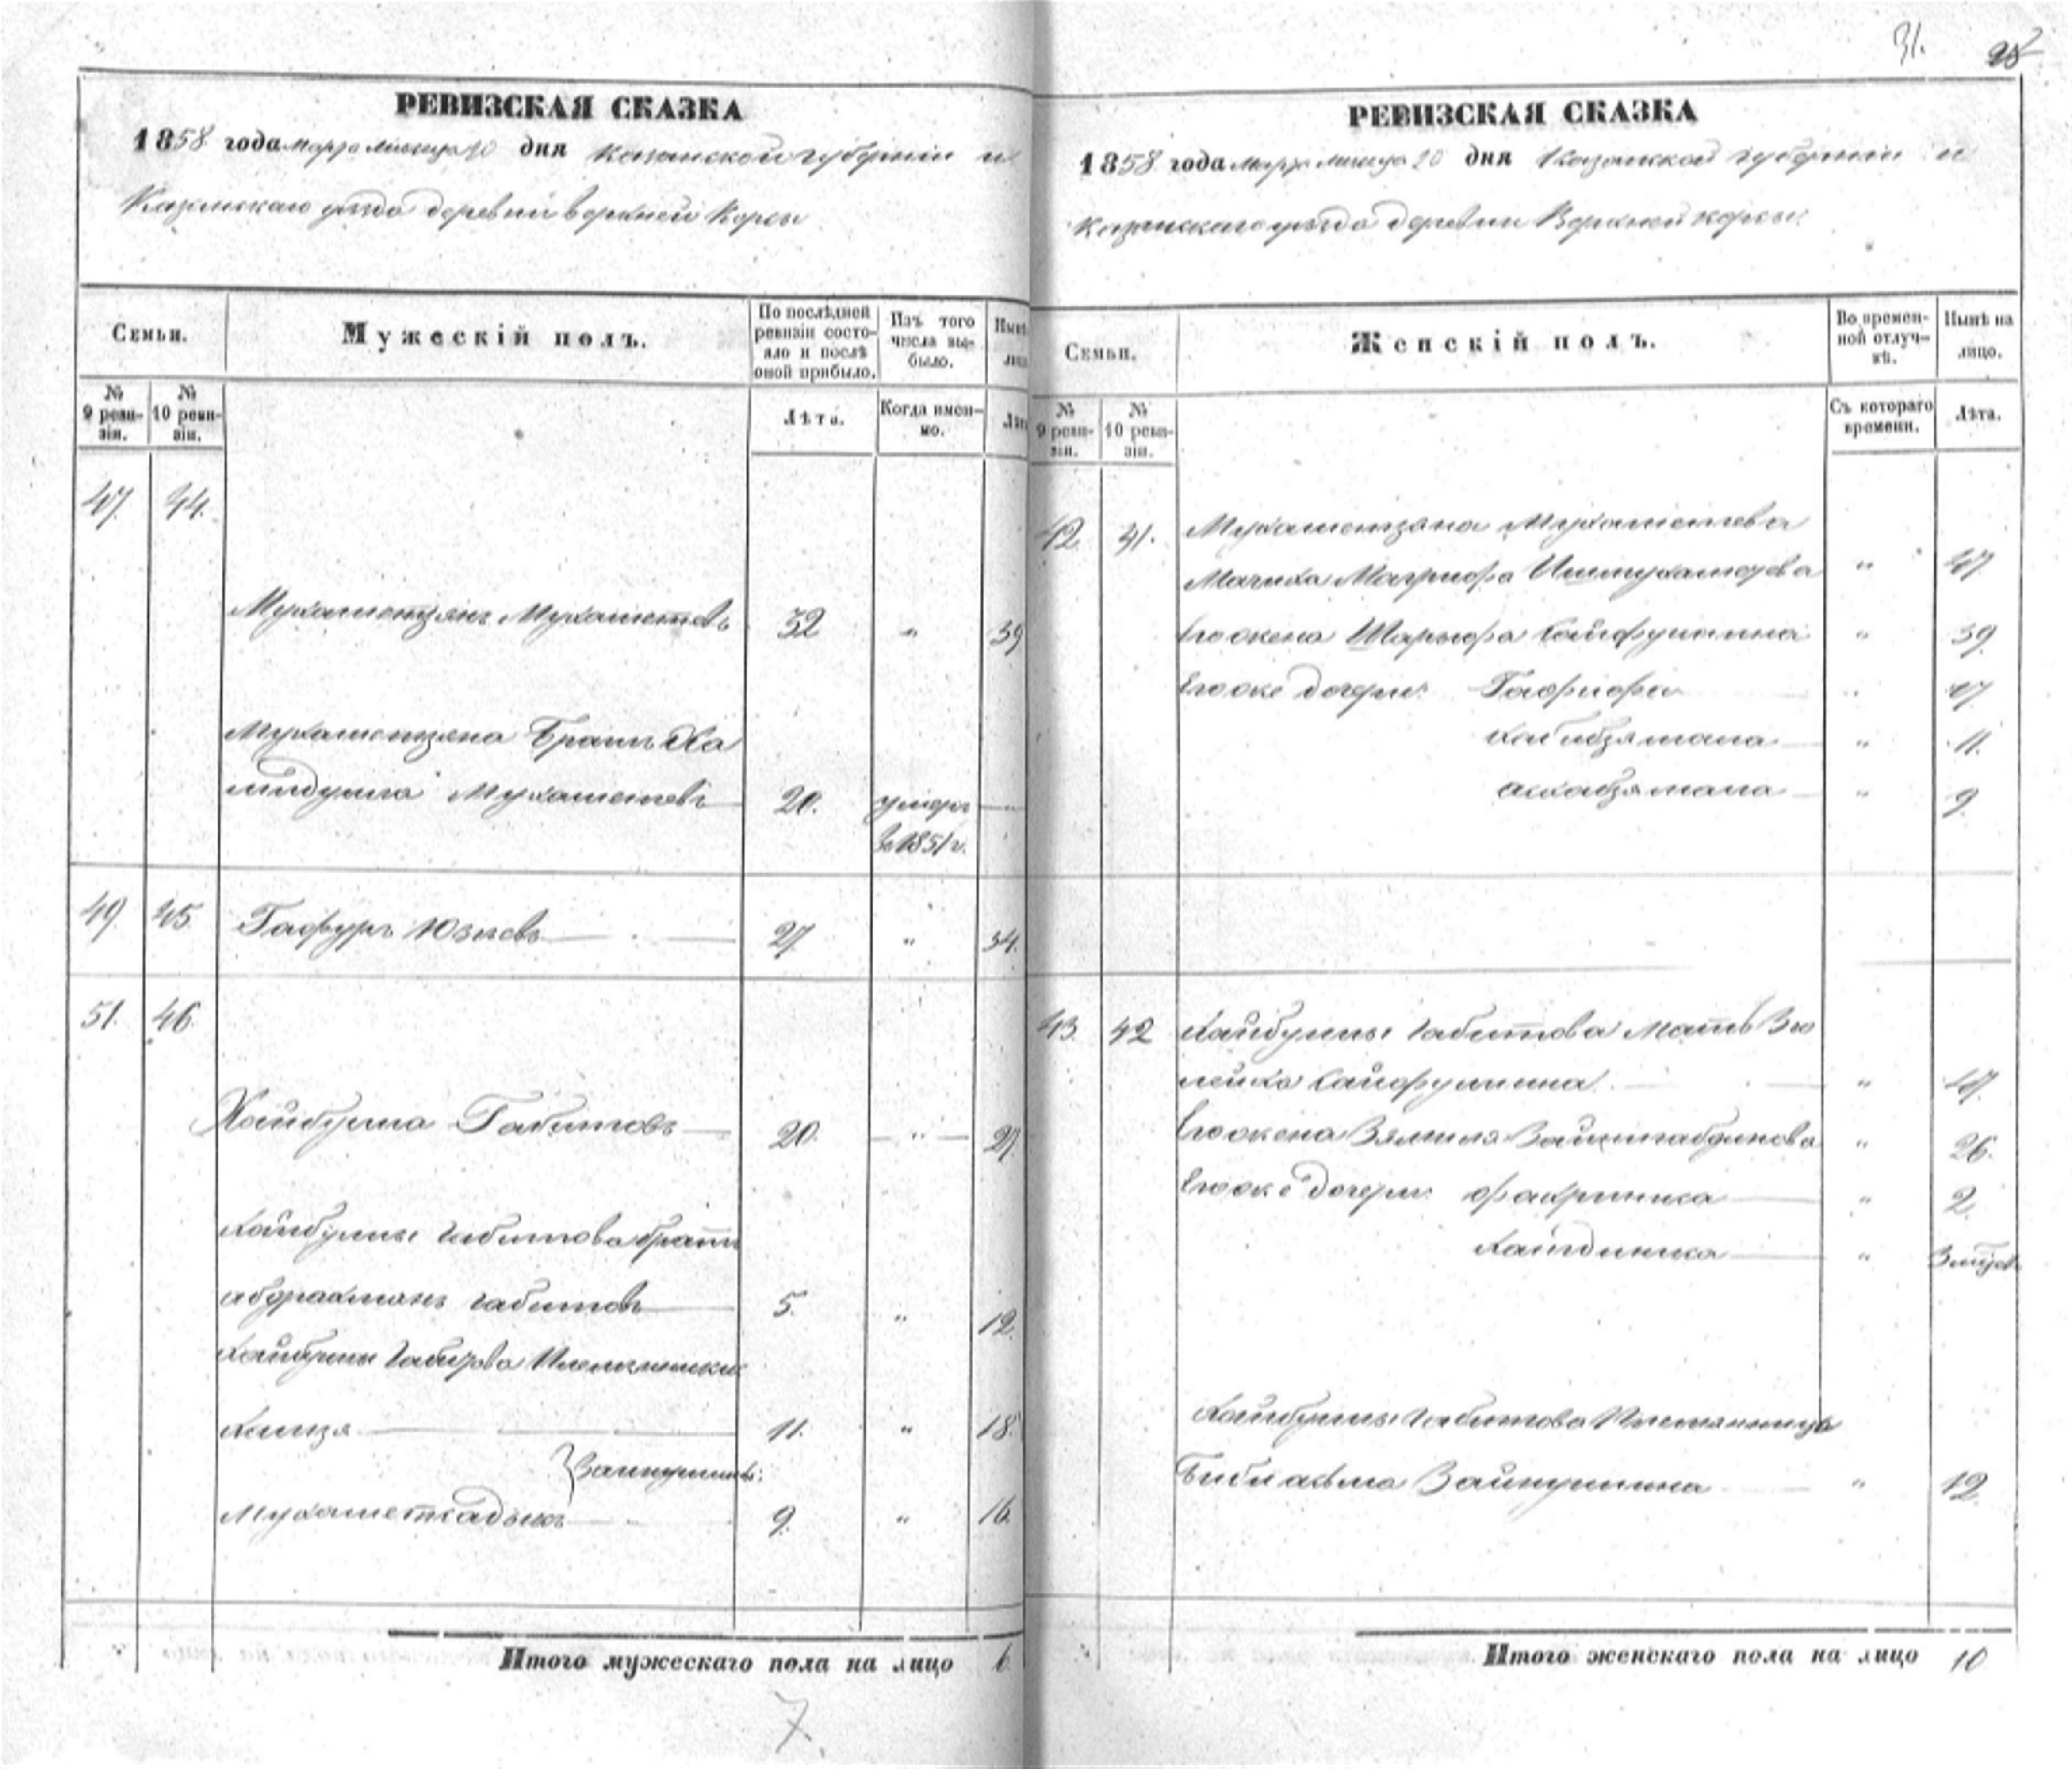 31. 28
РЕВИЗСКАЯ СКАЗКА
1858 года марта месяца 20 дня Казанской губернии и
Казанскаго уезда деревни верхней Корсы
Семьи.
Мужескій полъ.
По послѣдней ревизіи состояло и послѣ оной прибыло.
Изъ того числа выбыло.
№ 9 ревизіи.
№ 10 ревизіи.
Лѣта.
Когда именно.
47. 44.
Мухаметзянъ Мухаметевъ 32 „ 39
Мухаметзяна Братъ Ха
мидулла Мухаметевъ 20. умеръ
в 1851 г.
49. 45. Гафуръ Юзеевъ 27 „ 34.
51. 46.
Хайбулла Габитовъ 20. „ 27
Хайбуллы Габитова братъ
абдрахманъ габитовъ 5. „ 12.
Хайбуллы Габитова Племянники
Хамзя 11. „ 18.
Зайнуллины:
Мухаметсадыкъ 9. „ 16.
Итого мужескаго пола на лицо 6
7.
РЕВИЗСКАЯ СКАЗКА
1858 года марта месяца 20 дня Казанской губернии и
Казанскаго уезда деревни Верхней корсы:
Семьи.
Женскій полъ.
Во временной отлучкѣ.
Нынѣ на лицо.
№ 9 ревизіи.
№ 10 ревизіи.
Съ котораго времени.
Лѣта.
42. 41. Мухаметзяна Мухаметева
Мачиха Магрифа Ишмухаметева „ 47
Егожена Шарифа Хайфуллина „ 39.
Егоже дочери: Гафифа „ 17.
Хабибзямала „ 11.
асхабзямала „ 9.
43. 42 Хайбуллы Габитова Мать Зю
лейха Сайфуллина „ 47.
Егожена Зямиля Зайнигабдинова „ 26.
Егоже дочери: Фахриниса „ 2.
„
Хайбуллы Габитова Племянница
Биби Зайнуллина „ 12.
Итого женскаго пола на лицо 10